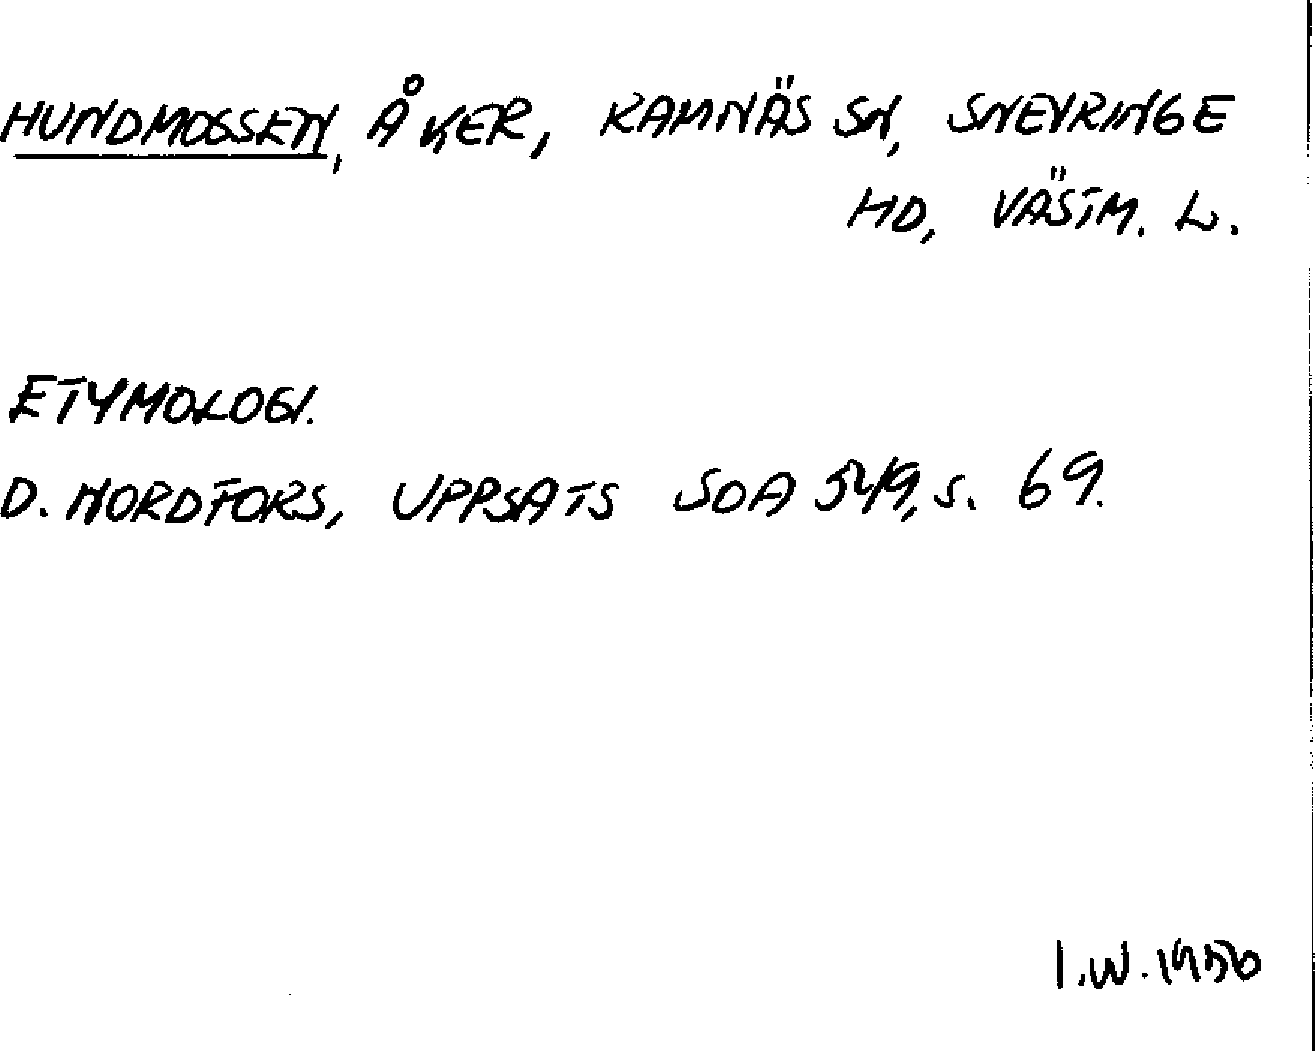 HUNDMOSSEN, ÅKER, RAMNÄS SN, SNEVRINGE
HD, VÄSTM. L.
ETYMOLOGI.
D. NORDFORS, UPPSATS SOA 549, s. 69.
I.W. 1956